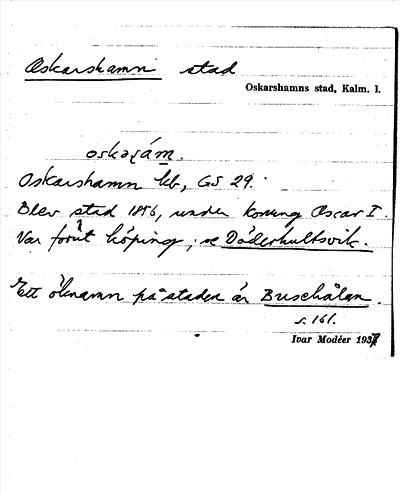 Oskarshamn stad
Oskarshamns stad, Kalm. l.
oskaṣám.
Oskarshamn kb, GS 29.
Blev stad 1856, under konung Oscar I.
Var förut köping; se Döderhultsvik.
Ett öknamn på staden är Buschålan.
s. 161.
Ivar Modéer 1937